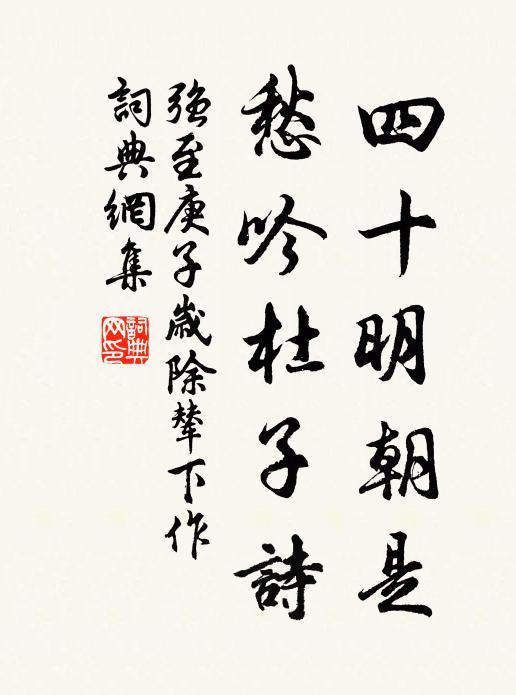 四十明朝是
愁吟杜子詩
強至庚子歲除輦下作
詞典網集
詞典網印